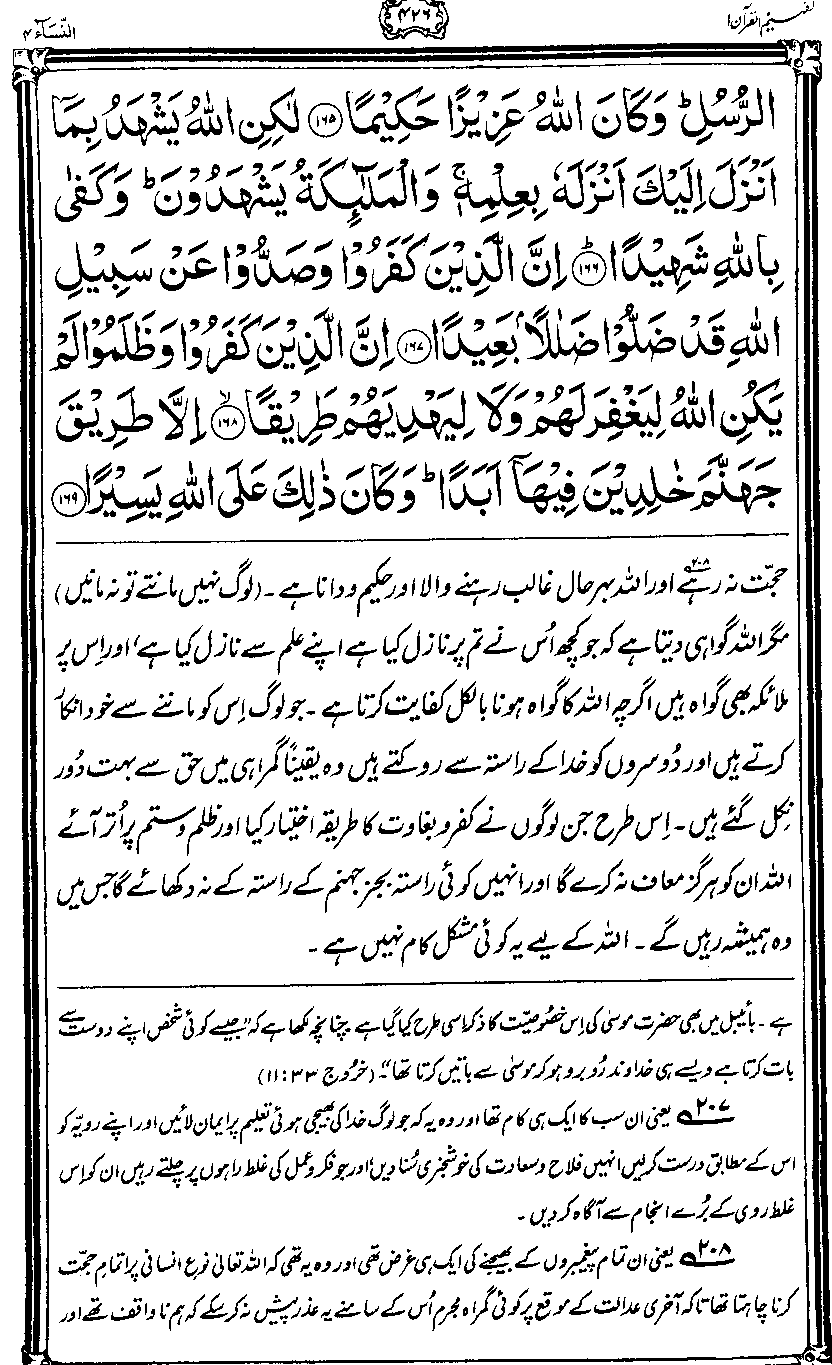 تفہیم القرآن ۱
۴۲۶
النّسَآء ۴
الرُّسُلِ ؕ وَكَانَ اللّٰهُ عَزِيْزًا حَكِيْمًا ﴿۱۶۵﴾ لٰكِنِ اللّٰهُ يَشْهَدُ بِمَاۤ
اَنْزَلَ اِلَيْكَ اَنْزَلَهٗ بِعِلْمِهٖ ۚ وَالْمَلٰٓئِكَةُ يَشْهَدُوْنَ ؕ وَكَفٰى
بِاللّٰهِ شَهِيْدًا ﴿۱۶۶﴾ ؕ اِنَّ الَّذِيْنَ كَفَرُوْا وَصَدُّوْا عَنْ سَبِيْلِ
اللّٰهِ قَدْ ضَلُّوْا ضَلٰلًاۢ بَعِيْدًا ﴿۱۶۷﴾ اِنَّ الَّذِيْنَ كَفَرُوْا وَظَلَمُوْا لَمْ
يَكُنِ اللّٰهُ لِيَغْفِرَ لَهُمْ وَلَا لِيَهْدِيَهُمْ طَرِيْقًا ﴿۱۶۸﴾ ۙ اِلَّا طَرِيْقَ
جَهَنَّمَ خٰلِدِيْنَ فِيْهَاۤ اَبَدًا ؕ وَكَانَ ذٰلِكَ عَلَى اللّٰهِ يَسِيْرًا ﴿۱۶۹﴾
حجّت نہ رہے۲۰۸ اور اللہ بہرحال غالب رہنے والا اور حکیم و دانا ہے۔ (لوگ نہیں مانتے تو نہ مانیں)
مگر اللہ گواہی دیتا ہے کہ جو کچھ اُس نے تم پر نازل کیا ہے اپنے علم سے نازل کیا ہے، اور اِس پر
ملائکہ بھی گواہ ہیں اگرچہ اللہ کا گواہ ہونا بالکل کفایت کرتا ہے۔ جو لوگ اِس کو ماننے سے خود انکار
کرتے ہیں اور دُوسروں کو خدا کے راستہ سے روکتے ہیں وہ یقیناً گمراہی میں حق سے بہت دُور
نِکل گئے ہیں۔ اِس طرح جن لوگوں نے کفر و بغاوت کا طریقہ اختیار کیا اور ظلم و ستم پر اُتر آئے
اللہ ان کو ہرگز معاف نہ کرے گا اور انہیں کوئی راستہ بجز جہنم کے راستہ کے نہ دکھائے گا جس میں
وہ ہمیشہ رہیں گے۔ اللہ کے لیے یہ کوئی مشکل کام نہیں ہے۔
ہے۔ بائیبل میں بھی حضرت موسیٰ کی اِس خصُوصیّت کا ذکر اسی طرح کیا گیا ہے چنانچہ لکھا ہے کہ ”جیسے کوئی شخص اپنے دوست سے
بات کرتا ہے ویسے ہی خداوند رُوبرو ہو کر موسیٰ سے باتیں کرتا تھا“۔ (خرُوج ۳۳:۱۱)
۲۰۷ یعنی ان سب کا ایک ہی کام تھا اور وہ یہ کہ جو لوگ خدا کی بھیجی ہوئی تعلیم پر ایمان لائیں اور اپنے رویّہ کو
اس کے مطابق درست کر لیں انہیں فلاح و سعادت کی خوشخبری سُنا دیں، اور جو فکر و عمل کی غلط راہوں پر چلتے رہیں ان کو اِس
غلط روی کے بُرے انجام سے آگاہ کر دیں۔
۲۰۸ یعنی ان تمام پیغمبروں کے بھیجنے کی ایک ہی غرض تھی اور وہ یہ تھی کہ اللہ تعالیٰ نوعِ انسانی پر اتمامِ حجّت
کرنا چاہتا تھا تاکہ آخری عدالت کے موقع پر کوئی گمراہ مجرم اُس کے سامنے یہ عذر پیش نہ کر سکے کہ ہم نا واقف تھے اور